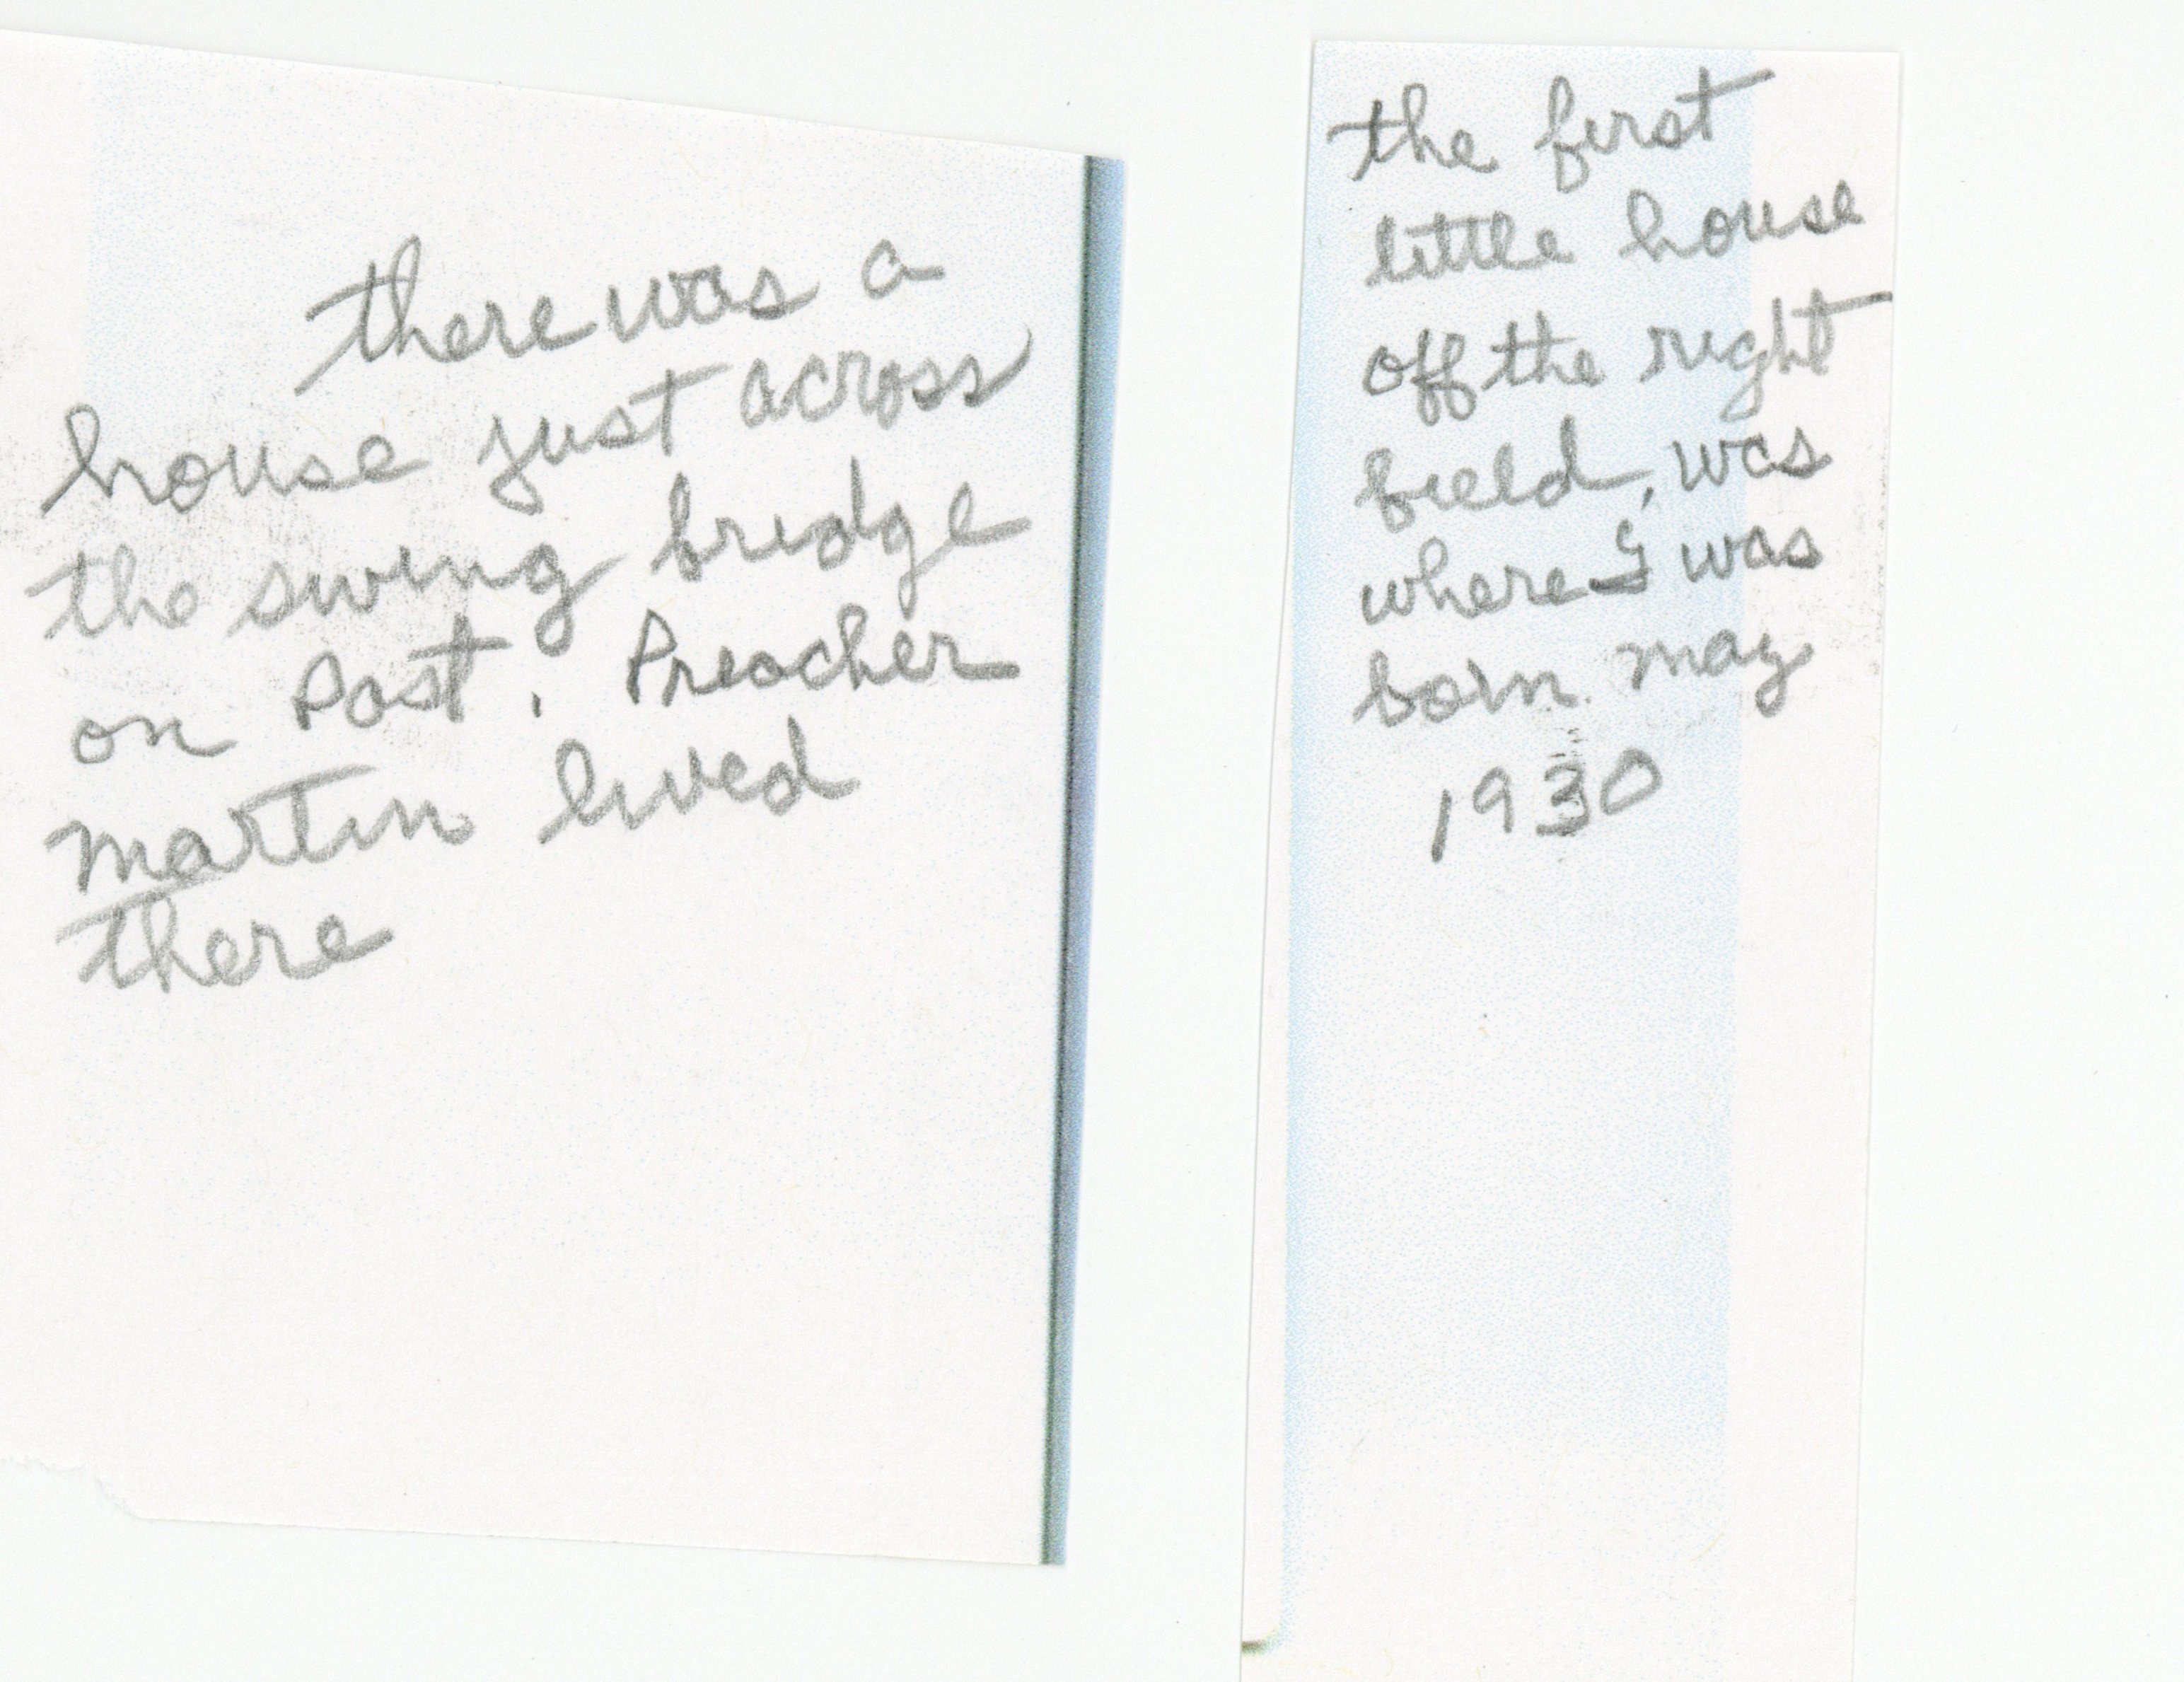 there was a
house just across
the swing bridge
on Post. Preacher
martin lived
there
the first
little house
off the right
field, was
where I was
born may
1930